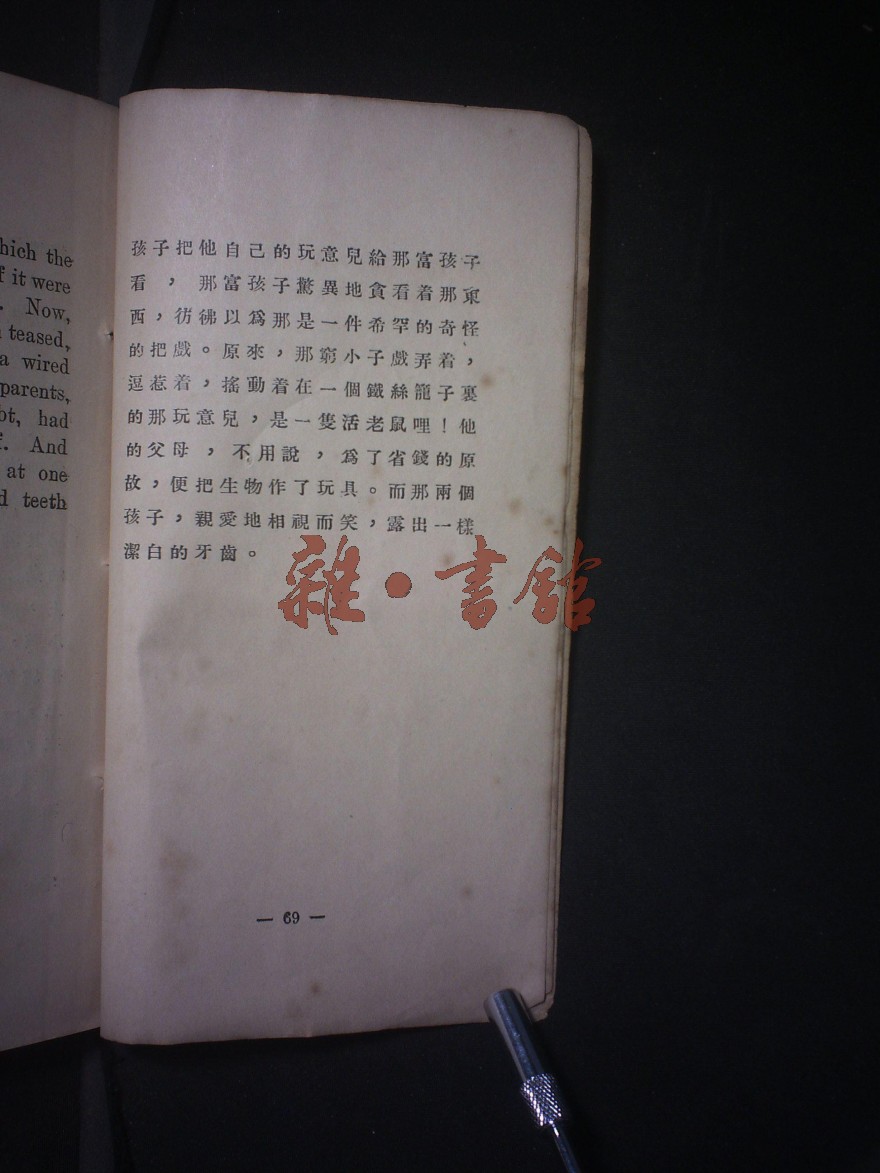 hich the
f it were
. Now,
teased,
a wired
parents,
bt, had
f. And
at one
d teeth
孩子把他自己的玩意兒給那富孩子
看，那富孩子驚異地貪看着那東
西，彷彿以爲那是一件希罕的奇怪
的把戲。原來，那窮小子戲弄着，
逗惹着，搖動着在一個鐵絲籠子裏
的那玩意兒，是一隻活老鼠哩！他
的父母，不用說，爲了省錢的原
故，便把生物作了玩具。而那兩個
孩子，親愛地相視而笑，露出一樣
潔白的牙齒。
雜·書館
— 69 —